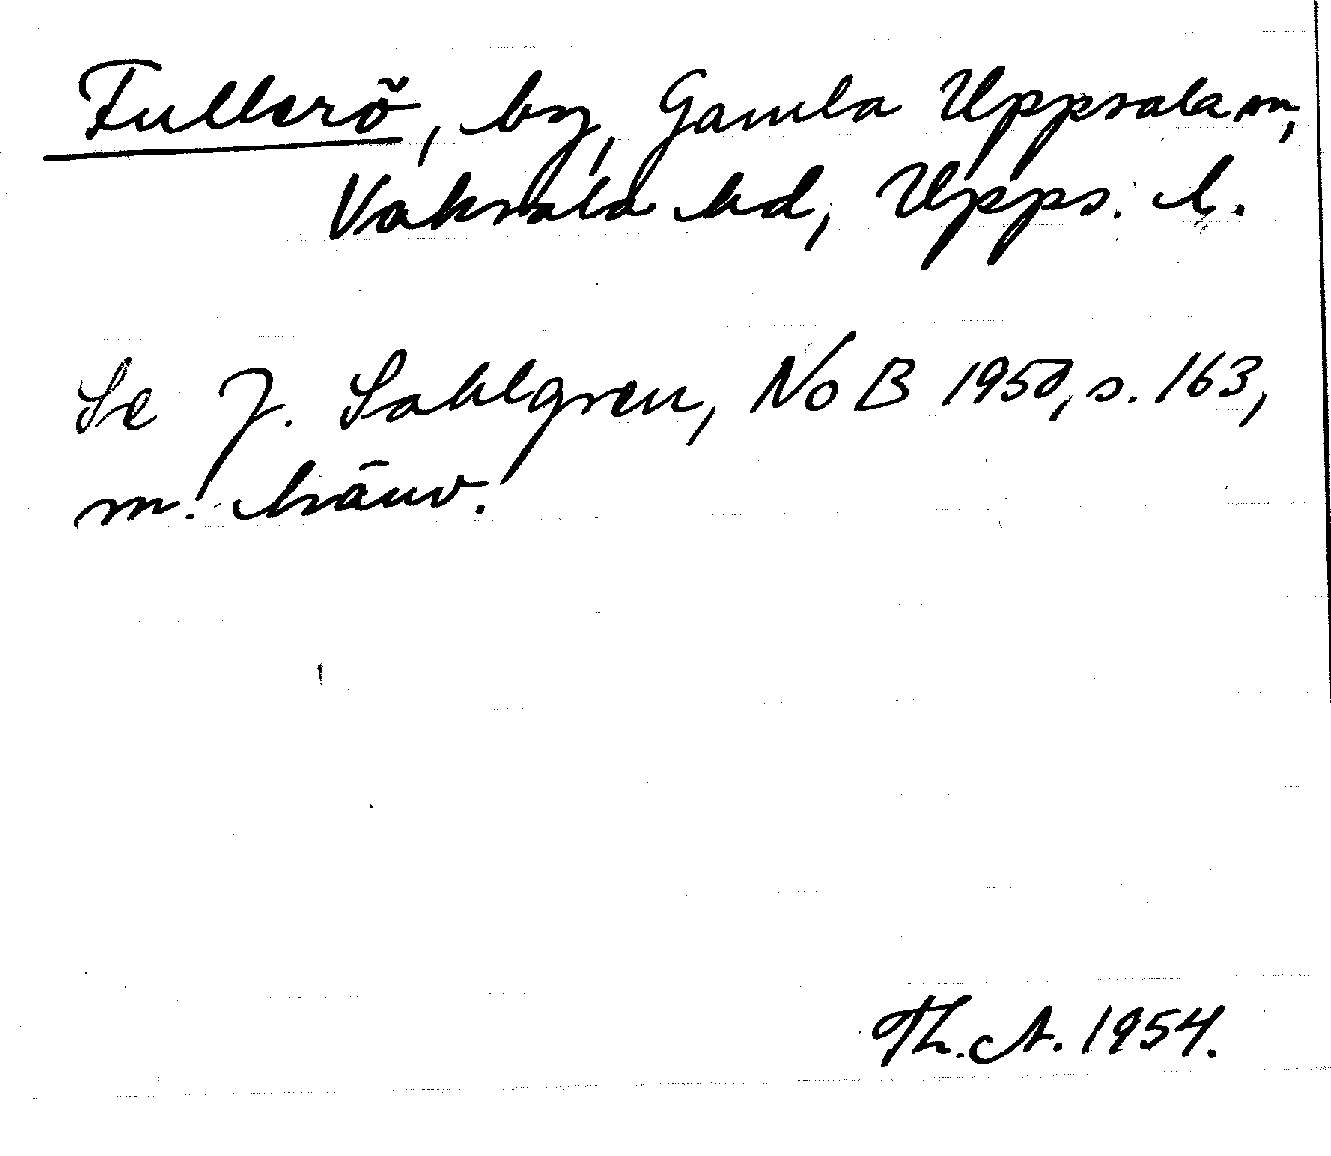 Fullerö, by, Gamla Uppsala sn,
Vaksala hd, Upps. l.
Se J. Sahlgren, NoB 1950, s. 163,
m. hänv.
Th. A. 1954.